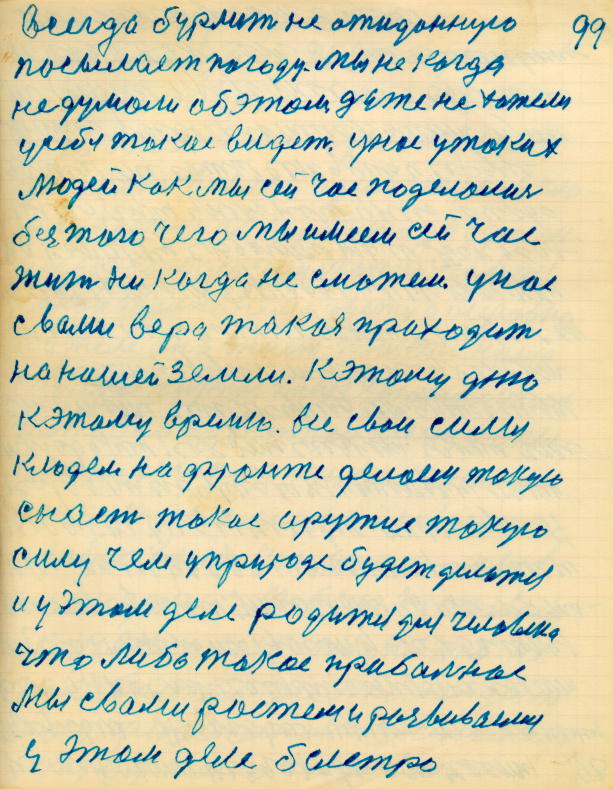 всегда бурлит не ожиданную 99
посылает погоду. мы не когда
не думали об этом, даже не хотели
усебя такое видет. унас утаких
людей как мы сей час поделались
без того чего мы имеем сей час
жит ни когда не сможем. унас
свами вера такая проходит
на нашей земли. Кэтому дню
Кэтому времю. все свои силы
кладем на фронте делаем такую
снаст такое оружие такую
силу чем уприроде будет делатся
и у этом деле родится для человека
что либо такое прибалное
мы свами ростем и розвиваемся
у этом деле быстро